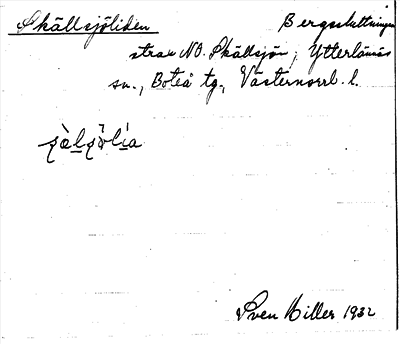 Skällsjöliden Bergssluttningen
strax NO. Skällsjön, Ytterlännäs
sn., Boteå tg., Västernorrl. l.
Sven Hiller 1932